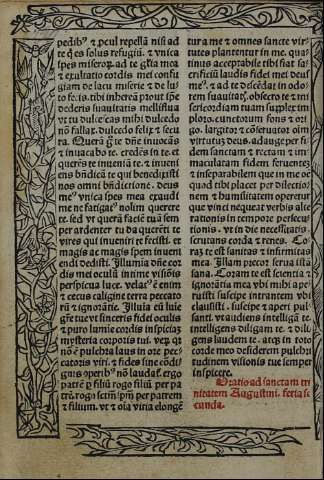 pedib⁹ & pcul repellā nisi ad
te q̄ es solus refugiū. & vnica
spes miseror, ad te grīa mea
& exultatio cordis mei confu
giam de lacu miserie & de lu
to fecis. tibi inhereā prout spē
dederis suauitatis mellifflua
vt tu dulcescas mihi dulcedo
nō fallax. dulcedo felix & secu
ra. Querā q̄ te dn̄e inuocās
& inuocabo te. credēs in te. et
querēs te inueniā te. & inueni
ens bn̄dicā te qui benedixisti
nos omni bn̄dictione. deus
me⁹ vnica spes mea exaudi
me ne fatigat⁹ nolim querere
te. sed vt querā faciē tuā sem
per ardenter tu da querēti te
vires qui inueniri te fecisti. et
magis ac magis spem inueni
endi dedisti. Illumīa dn̄e cor
dis mei oculū intime visiōis
perspicua luce. velat⁹ ē enim
& cecus caligine terra peccato
rū & ignorātie. Illuīa eū luie
gr̄e tue vt sinceris fidei oculis
& puro lumie cordis inspiciaz
mysteria corporis tui. verū qr
nō ē pulchra laus in ore pec/
catoris viri. & fides sine cōdi/
gnis oꝑerib⁹ nō laudat. ergo
patrē ꝑ filiū rogo filiū. per pa
trē. rogo sctm̄ sp̄m. per patrem
& filium. vt & oīa vitia elongē
tur a me & omnes sancte vir/
tutes plantentur in me. qua/
tinus acceptabile tibi fiat sa/
crificiū laudis fidei mei deus
me⁹. & ad te descēdat in odo/
rem suauitat. obsecro te & mi
sericordiam tuam supplex im
ploro. cunctorum fons & ori
go. largitor & cōseruator oīm
virtutuz deus. adauge per fi
dem sanctam & rectam & im
maculatam fidem feruentez
& inseparabilem que in me oc
quod tibi placet per dilectio/
nem & humilitatem operetur
que vinci nequeat verbis alte
rationis in tempore persecu/
tionis. vt in die necessitatis
scrutans corda & renes. Co/
raz te est sanitas & infirmitas
mea. Illam precor serua istā
sana. Coram te est scientia &
ignorātia mea vbi mihi ape
ruisti suscipe intrantem vbi
clausisti. suscipe & aperi pul/
santi. vt audiens intelligā te.
intelligens diligam te. & dili
gens laudem te. atqꝫ in toto
corde meo desiderem pulchri
tudinem visionis tue semper
inspicere.
Oratio ad sanctam tri
nitatem Augustini. feria se
cunda.